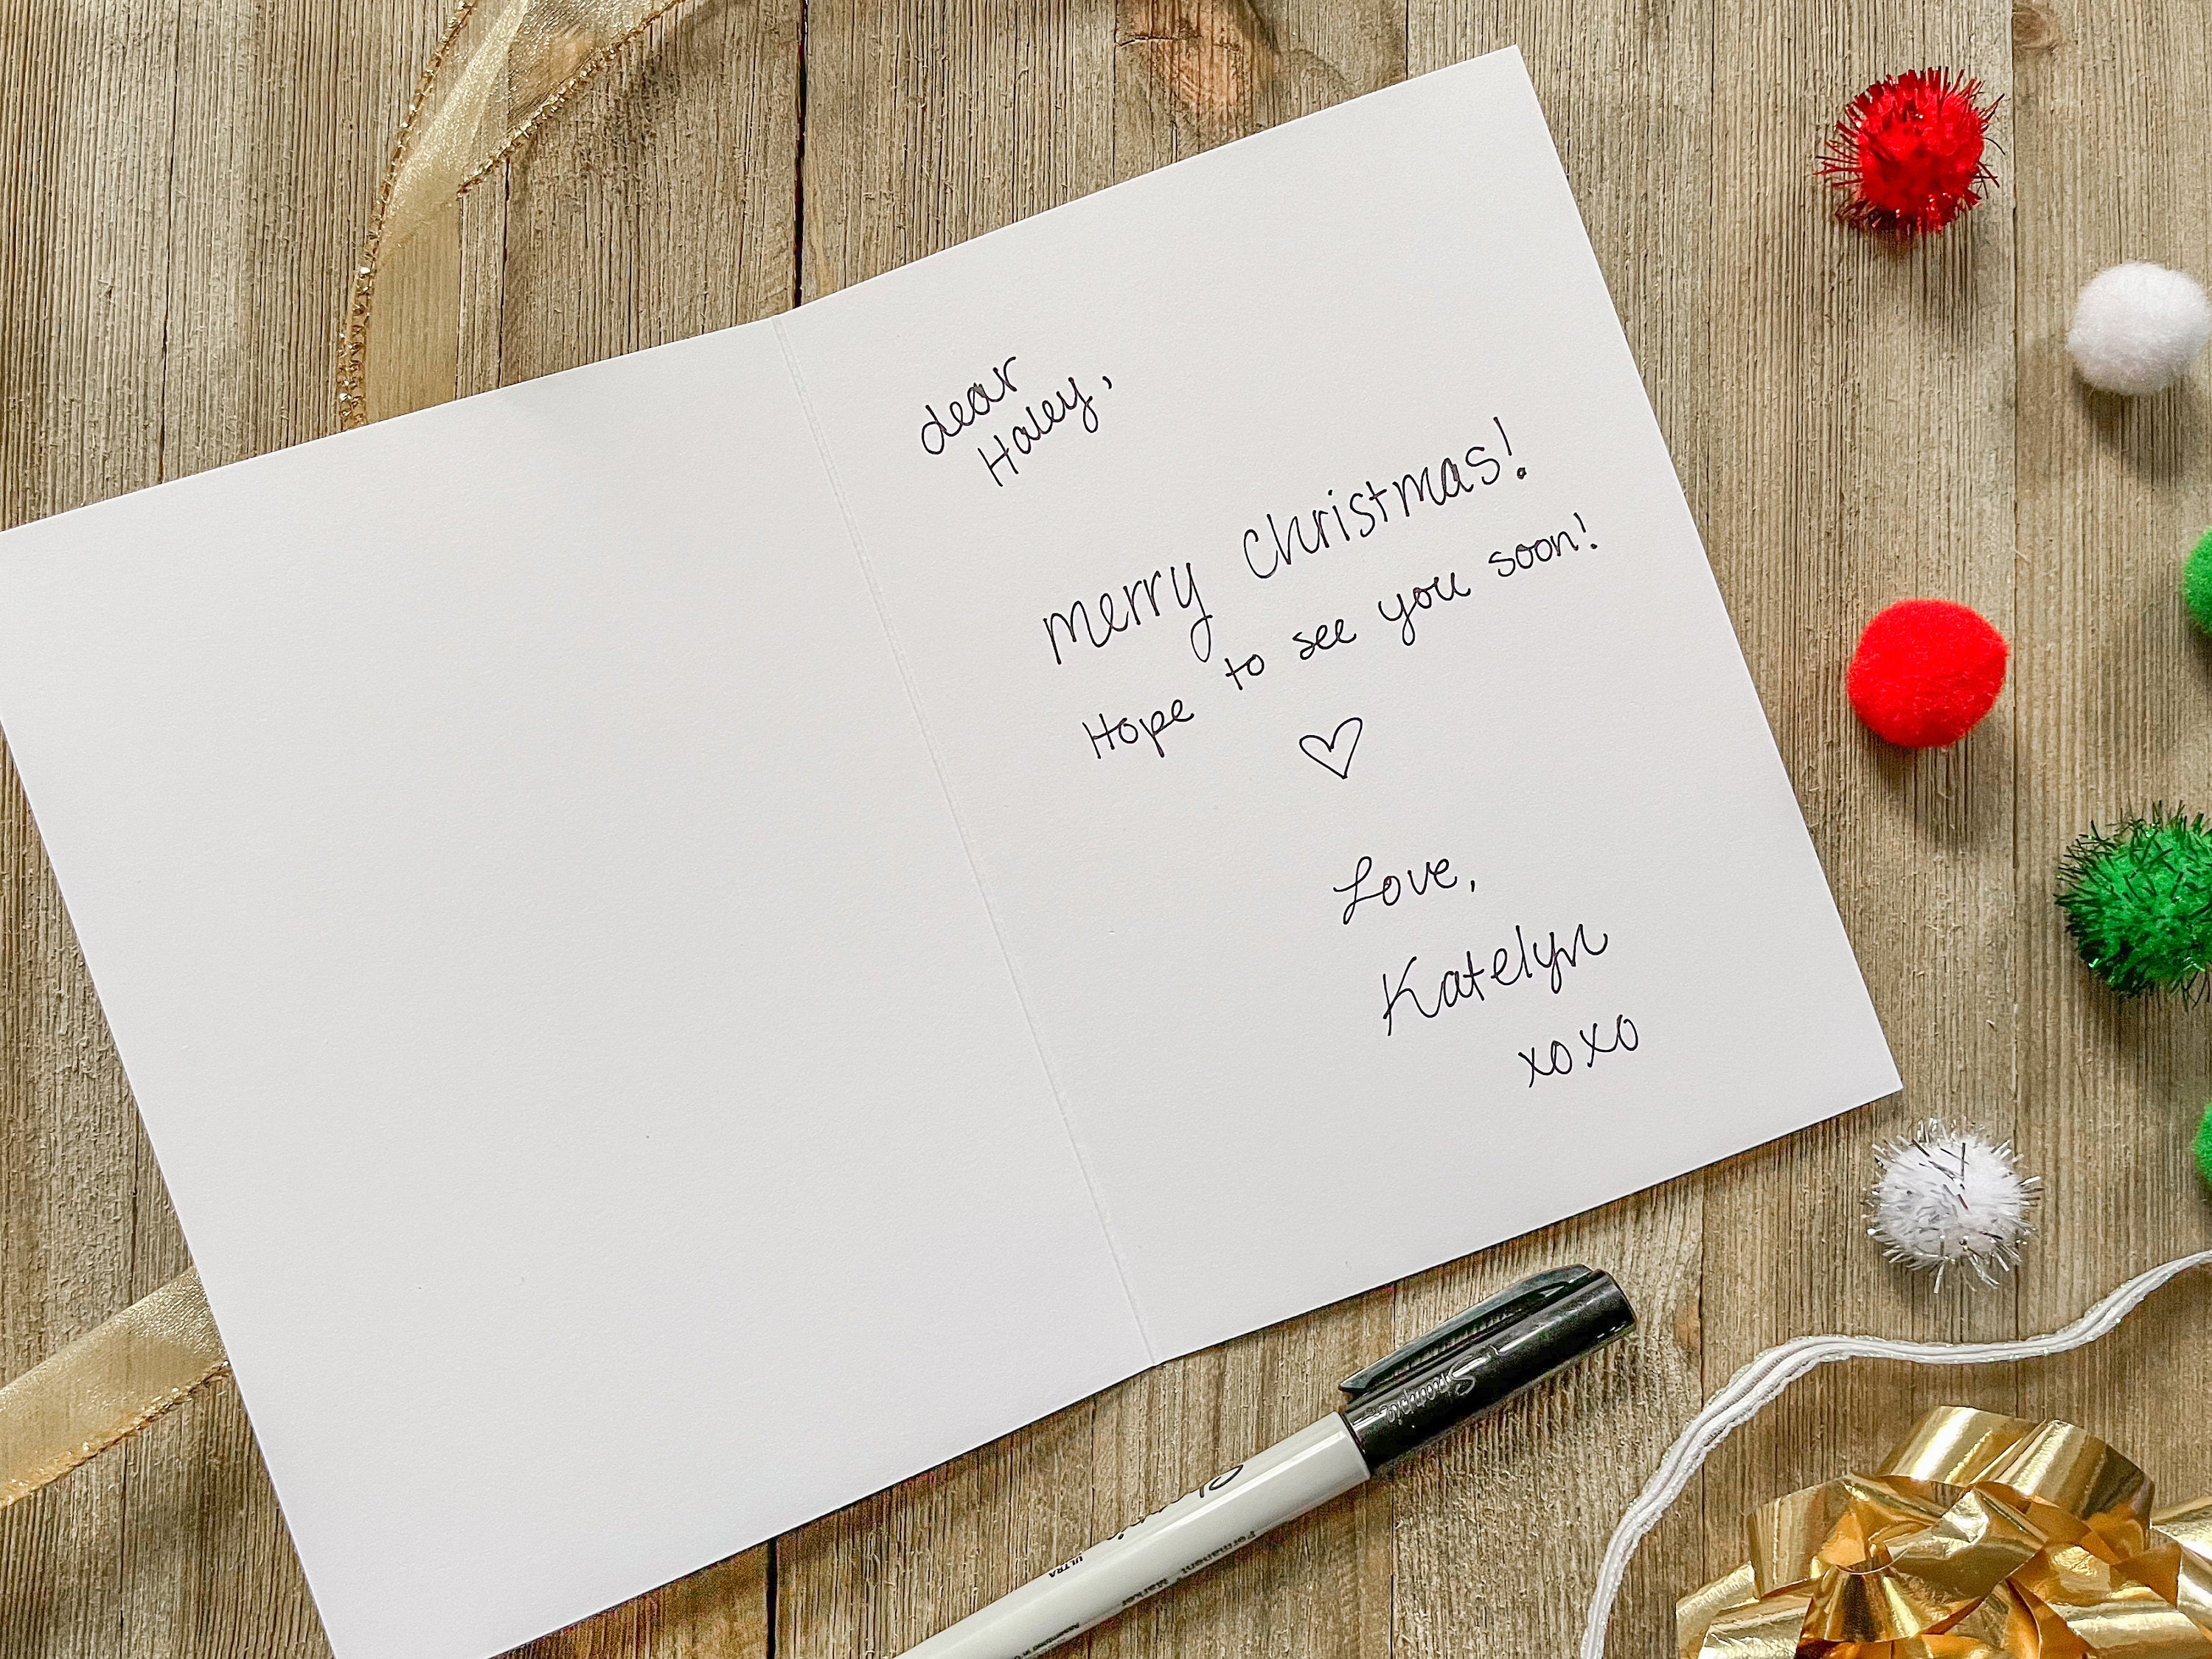 dear
Haley,
merry christmas!
Hope to see you soon!
♡
Love,
Katelyn
xoxo
Sharpie
Permanent Marker
ULTRA